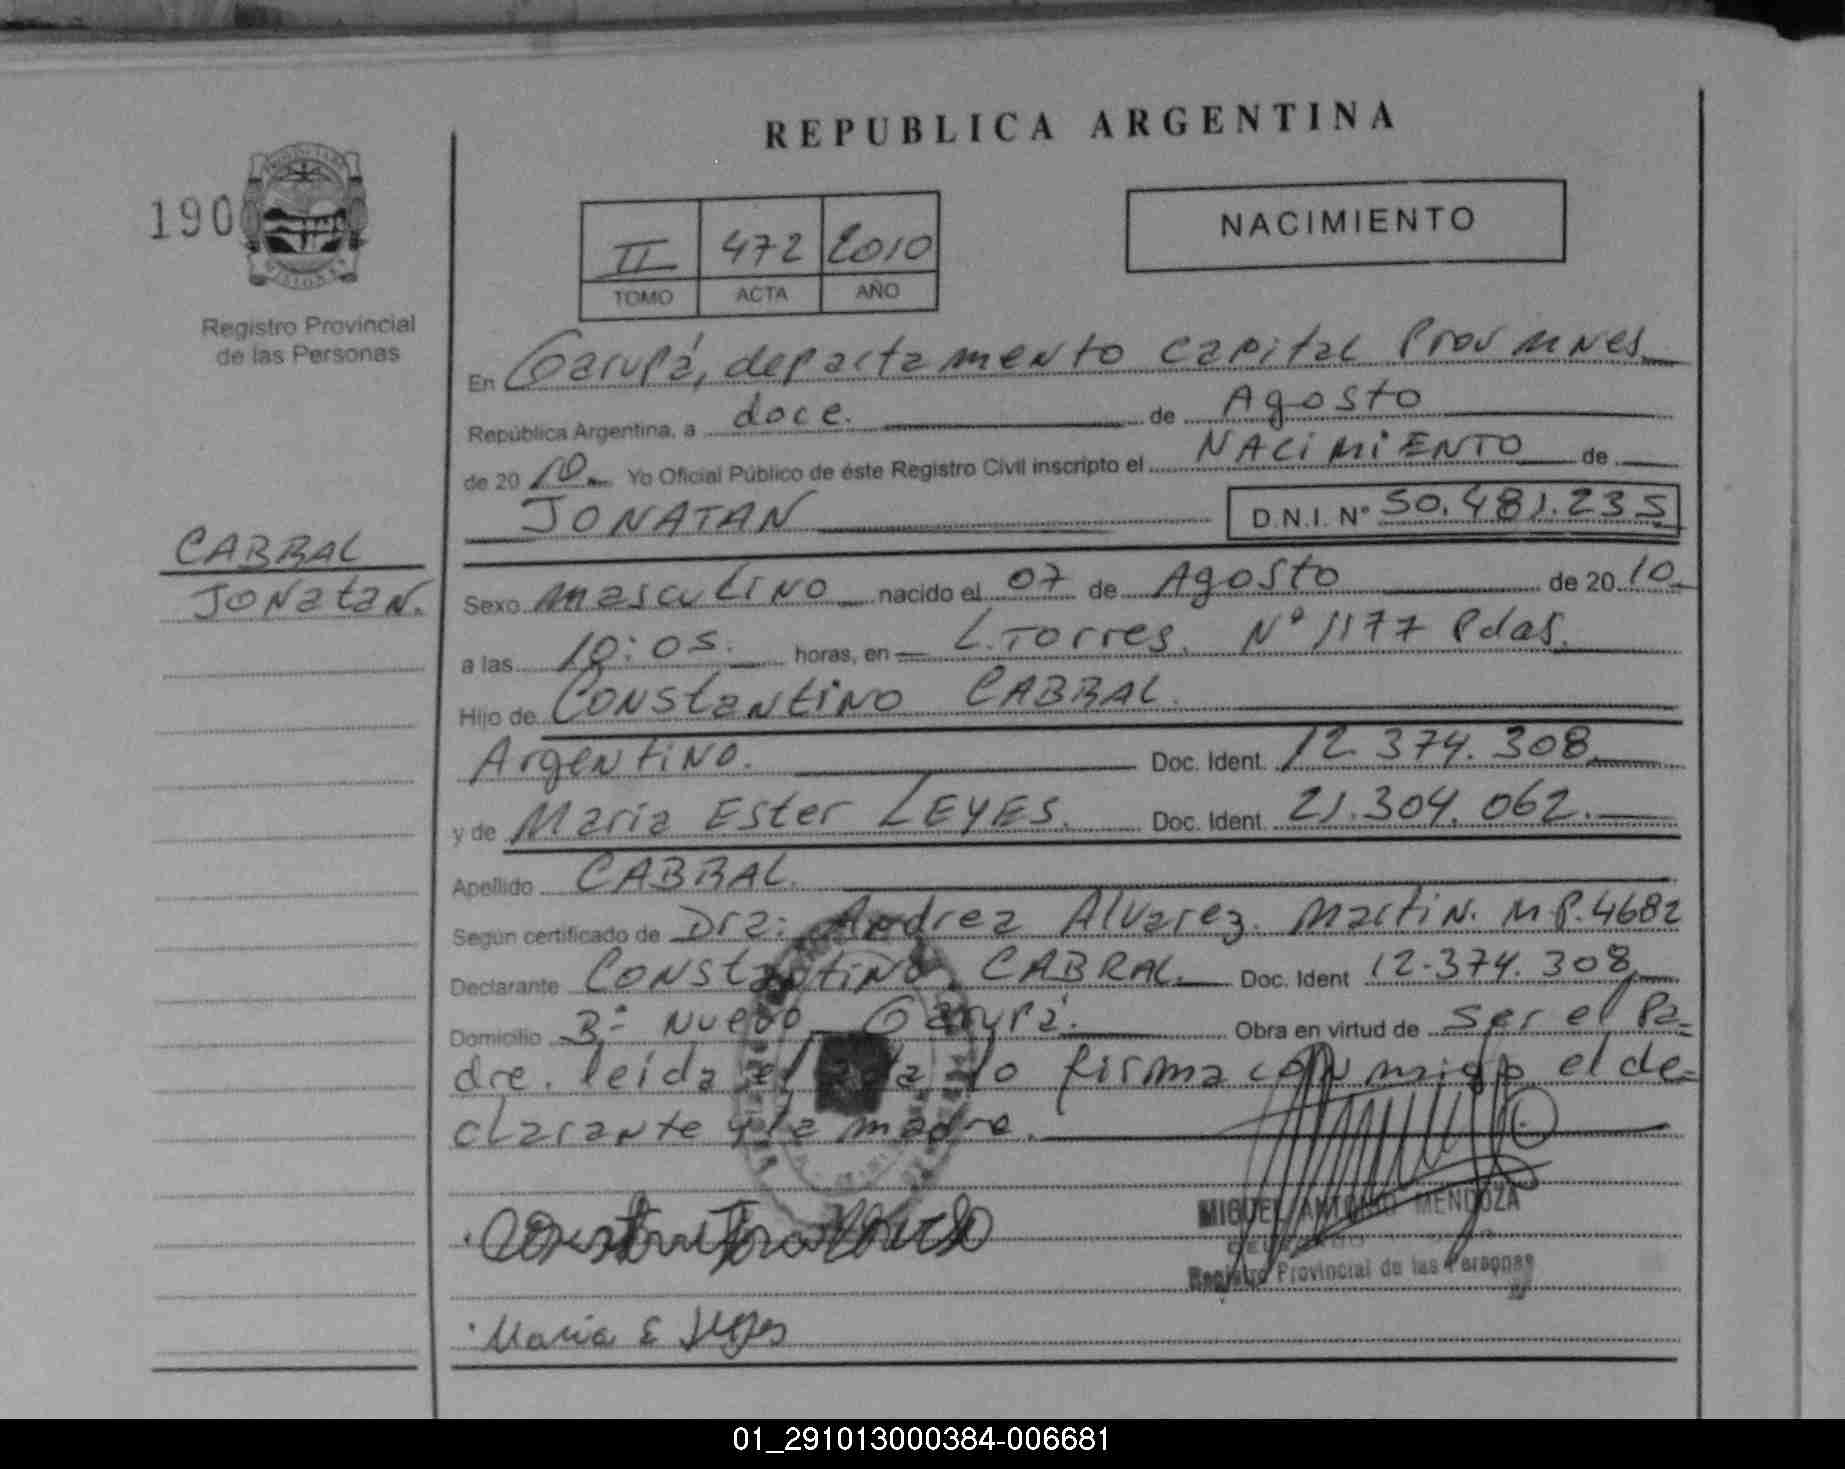 REPUBLICA ARGENTINA
190
PROVINCIA DE MISIONES
Registro Provincial
de las Personas
II 472 2010
TOMO ACTA AÑO
NACIMIENTO
En Garupá, departamento capital Prov mnes
República Argentina, a doce. de Agosto
de 20 10 Yo Oficial Público de éste Registro Civil inscripto el NACIMIENTO de
JONATAN D.N.I. Nº 50.481.235
CABRAL
JONatan.
Sexo masculino nacido el 07 de Agosto de 20 10
a las 10:05. horas, en L. Torres. Nº 1177 Pdas.
Hijo de Constantino CABRAL.
Argentino. Doc. Ident. 12.374.308
y de Maria Ester LEYES. Doc. Ident. 21.304.062.
Apellido CABRAL.
Según certificado de Dra: Andrea Alvarez. Martin. M.P. 4682
Declarante Constantino CABRAL. Doc. Ident 12.374.308
Domicilio Bº Nuevo Garupá. Obra en virtud de ser el Pa=
dre. leída el acta lo firma conmigo el de=
clarante y la madre.
MIGUEL ANTONIO MENDOZA
Registro Provincial de las Personas
Maria E Leyes
01_291013000384-006681